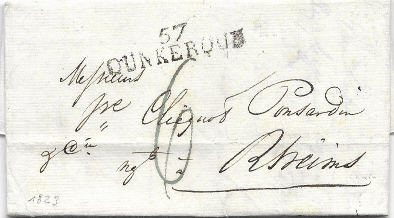 57
DUNKERQUE
Messieurs
Ve Clicquot Ponsardin
& Cie
6
negts à Rheims
1823